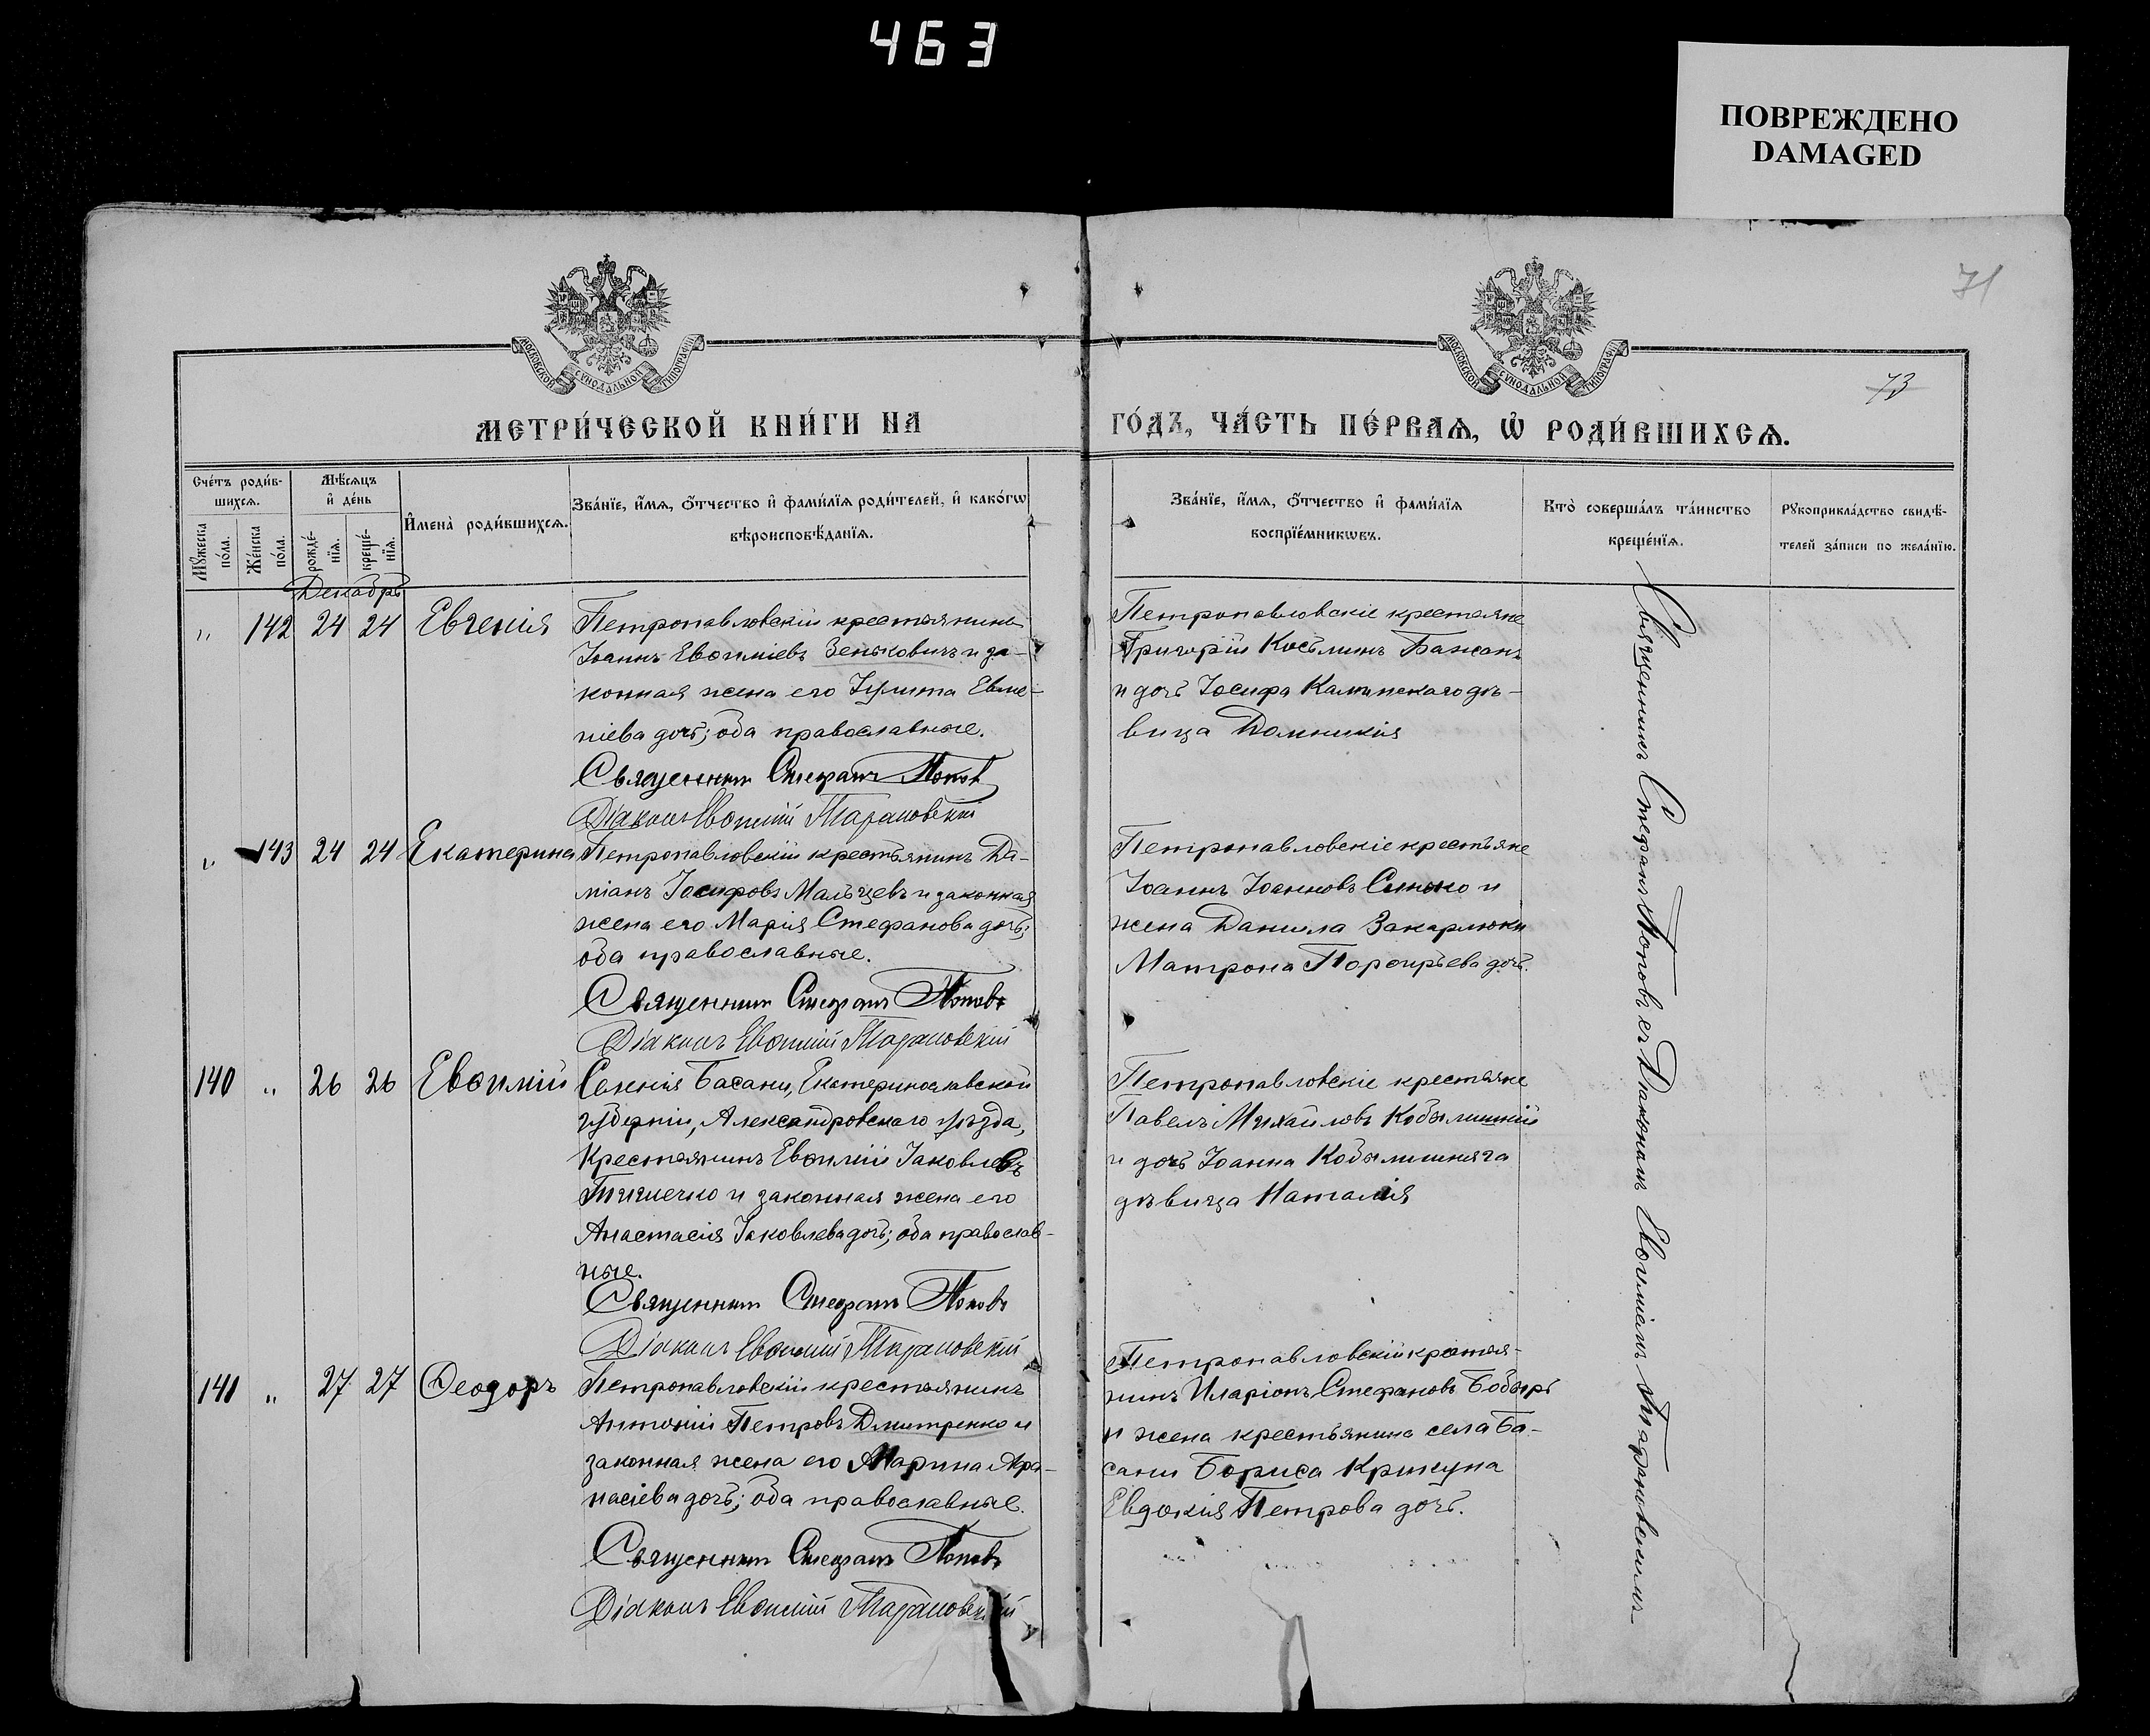 463
ПОВРЕЖДЕНО
DAMAGED
71
73
МОСКОВСКОЙ СѴНОДАЛЬНОЙ ТИПОГРАФІИ
МОСКОВСКОЙ СѴНОДАЛЬНОЙ ТИПОГРАФІИ
МЕТРИ́ЧЕСКОЙ КНИ́ГИ НА
ГО́ДЪ, ЧА́СТЬ ПЕ́РВАѦ, Ѡ҆ РОДИ́ВШИХСѦ.
Сче́тъ роди́в-
шихсѧ.
Мꙋ́жеска
по́ла.
Же́нска
по́ла.
Мѣ́сѧцъ
и҆ де́нь
рожде́-
нїѧ.
креще́-
нїѧ.
И҆мена̀ роди́вшихсѧ.
Зва́нїе, и҆́мѧ, ѻ҆́тчество и҆ фами́лїѧ роди́телей, и҆ како́гѡ
вѣроисповѣ́данїѧ.
Зва́нїе, и҆́мѧ, ѻ҆́тчество и҆ фами́лїѧ
воспрїе́мникѡвъ.
Кто̀ соверша́лъ та́инство
креще́нїѧ.
Рꙋкоприкла́дство свидѣ́-
телей за́писи по жела́нїю.
Декабрь
" 142 24 24 Евгенія
Петропавловскій крестьянинъ
Іоаннъ Евѳиміевъ Зеньковичъ и за-
конная жена его Іулита Евме-
ніева дочь; оба православные.
Священникъ Стефанъ Поповъ
Діаконъ Евѳимій Тарановскій
Петропавловскіе крестьяне
Григорій Косьминъ Бажанъ
и дочь Іосифа Калинскаго дѣ-
вица Домникія
" 143 24 24 Екатерина
Петропавловскій крестьянинъ Да-
міанъ Іосифовъ Мальцевъ и законная
жена его Марія Стефанова дочь;
оба православные.
Священникъ Стефанъ Поповъ
Діаконъ Евѳимій Тарановскій
Петропавловскіе крестьяне
Іоаннъ Іоанновъ и
жена Данила Закарлюки
Матрона Порфирьева дочь.
140 " 26 26 Евѳимій
Селенія Басани, Екатеринославской
губерніи, Александровскаго уѣзда,
Крестьянинъ Евѳимій Іаковлевъ
Тимченко и законная жена его
Анастасія Іаковлева дочь; оба православ-
ные.
Священникъ Стефанъ Поповъ
Діаконъ Евѳимій Тарановскій
Петропавловскіе крестьяне
Павелъ Михаиловъ
и дочь Іоанна
дѣвица Наталія
141 " 27 27 Ѳеодоръ
Петропавловскій крестьянинъ
Антоній Петровъ Дмитренко и
законная жена его Марина Аѳа-
насіева дочь; оба православные.
Священникъ Стефанъ Поповъ
Діаконъ Евѳимій Тарановскій
Петропавловскій крестья-
нинъ Иларіонъ Стефановъ Бобырь
и жена крестьянина села Ба-
сани Бориса Крикуна
Евдокія Петрова дочь.
Священникъ Стефанъ Поповъ съ Діакономъ Евѳиміемъ Тарановскимъ